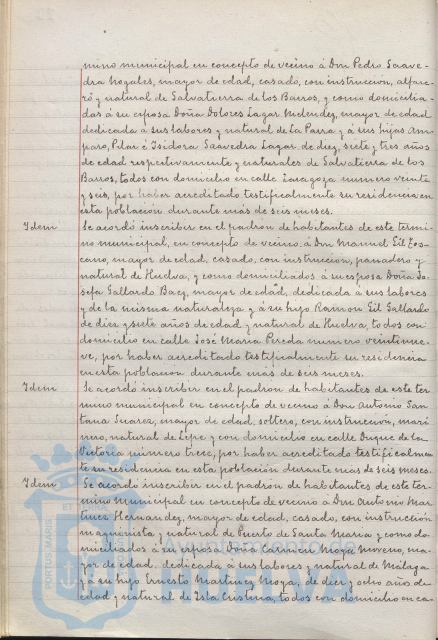 mino municipal en concepto de vecino á Don Pedro Saave-
dra Nogales, mayor de edad, casado, con instrucción, alfare-
ro y natural de Salvatierra de los Barros, y como domicilia-
das á su esposa Doña Dolores Lagar Melendez, mayor de edad
dedicada á sus labores y natural de La Parra y á sus hijas Am-
paro, Pilar é Isidora Saavedra Lagar de diez, siete y tres años
de edad respetivamente y naturales de Salvatierra de los
Barros, todos con domicilio en calle Zaragoza numero veinte
y seis, por haber acreditado testificalmente su residencia en
esta población durante más de seis meses.
Idem Se acordó inscribir en el padrón de habitantes de este termi-
no municipal, en concepto de vecino á Don Manuel Gil Tos-
cano, mayor de edad, casado, con instruccion, panadero y
natural de Huelva, y como domiciliados á su esposa Doña Jo-
sefa Gallardo Baez, mayor de edad, dedicada á sus labores
y de la misma naturaleza y á su hijo Ramon Gil Gallardo
de diez y siete años de edad y natural de Huelva, todos con
domicilio en calle José Maria Pereda numero veintinue-
ve, por haber acreditado testificalmente su residencia
en esta poblacion durante más de seis meses.
Idem Se acordó inscribir en el padrón de habitantes de este tér
mino municipal en concepto de vecino á Don Antonio San-
tana Suarez, mayor de edad, soltero, con instrucción, mari
nero, natural de Lepe y con domicilio en calle Duque de la
Victoria número trece, por haber acreditado testificalmen
te su residencia en esta población durante más de seis meses.
Idem Se acordó inscribir en el padrón de habitantes de este tér-
mino municipal en concepto de vecino á Don Antonio Mar-
tinez Hernandez, mayor de edad, casado, con instrucción
maquinista y natural de Puerto de Santa Maria y como do-
miciliados á su esposa Doña Carmen Moya Moreno, ma-
yor de edad, dedicada á sus labores y natural de Málaga
y á su hijo Ernesto Martinez Moya, de diez y ocho años de
edad y natural de Isla Cristina, todos con domicilio en ca-
PORTUS MARIS